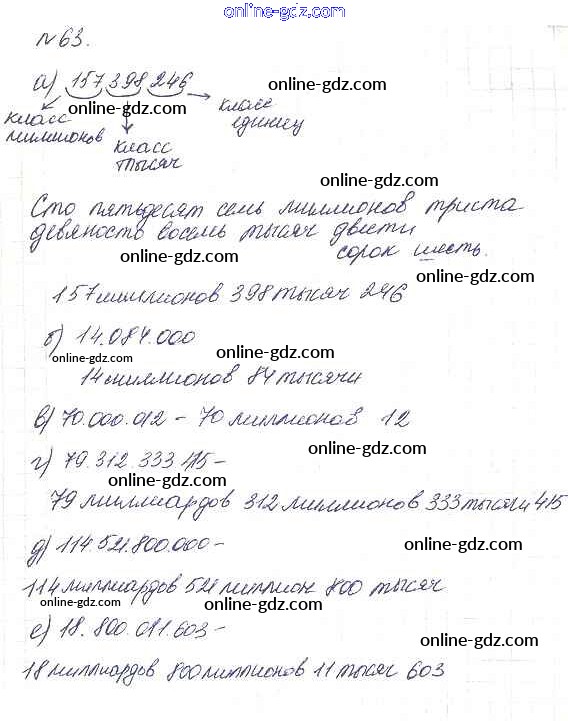 online-gdz.com
№63.
а) 157 398 246
online-gdz.com
online-gdz.com
класс миллионов
класс тысяч
класс единиц
online-gdz.com
Сто пятьдесят семь миллионов триста
девяность восемь тысяч двести
online-gdz.com
сорок шесть.
online-gdz.com
157 миллионов 398 тысяч 246
б) 14.084.000
online-gdz.com
online-gdz.com
14 миллионов 84 тысячи
в) 70.000.012 - 70 миллионов 12
online-gdz.com
г) 79.312.333.415-
online-gdz.com
79 миллиардов 312 миллионов 333 тысячи 415
д) 114.521.800.000-
online-gdz.com
114 миллиардов 521 миллион 800 тысяч
online-gdz.com
online-gdz.com
е) 18.800.011.603-
online-gdz.com
18 миллиардов 800 миллионов 11 тысяч 603